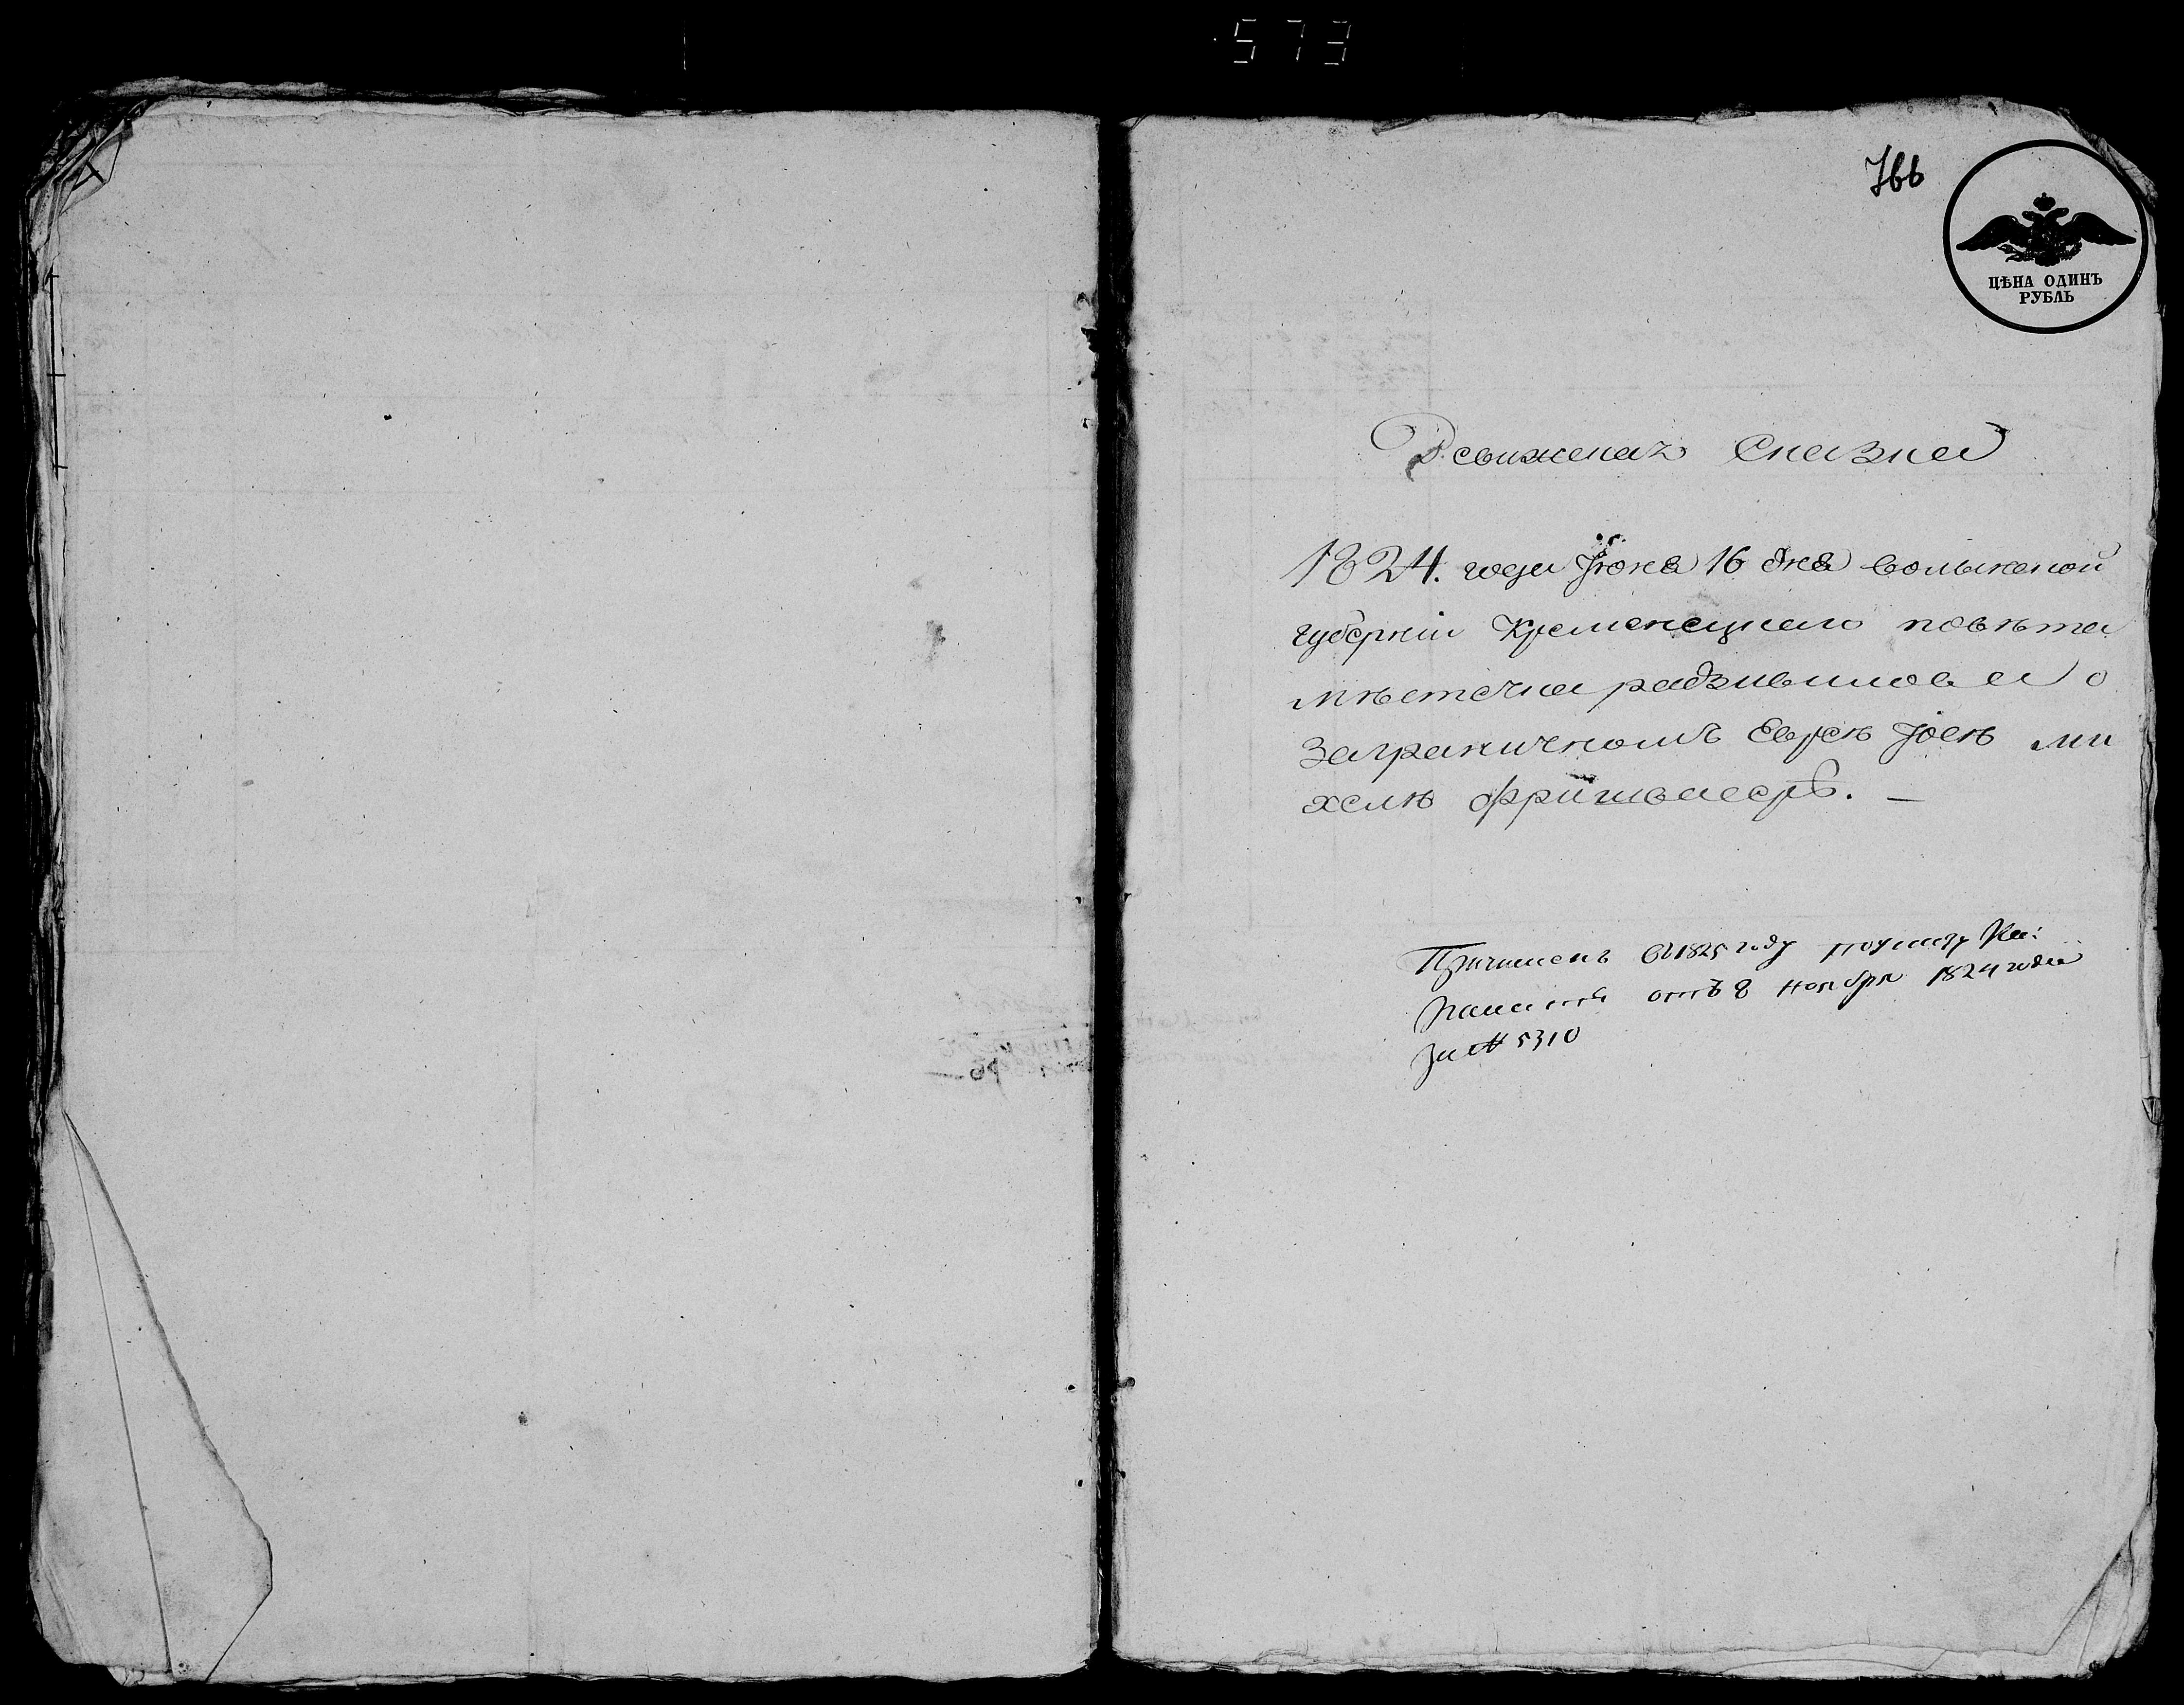 573
766
ЦѢНА ОДИНЪ
РУБЛЬ
Ревижская Сказка
1824. года Іюня 16 дня волынской
губерніи Кременецкого повѣта
мѣстечка радзивилова о
Заграничномъ Еврѣ Іосѣ ми
хелѣ
Причисленъ въ 1825 году по указу
палаты отъ 8 ноября 1824 года
за № 5310